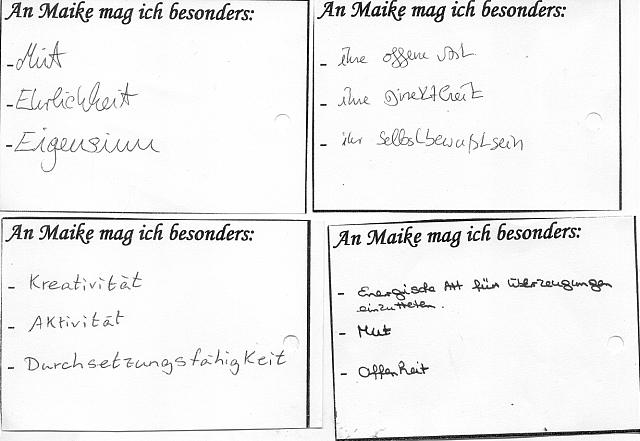 An Maike mag ich besonders:
- Mut
- Ehrlichkeit
- Eigensinn
An Maike mag ich besonders:
- ihre offene Art
- ihre Direktheit
- ihr Selbstbewußtsein
An Maike mag ich besonders:
- Kreativität
- Aktivität
- Durchsetzungsfähigkeit
An Maike mag ich besonders:
- Energische Art für Überzeugungen
einzutreten.
- Mut
- Offenheit